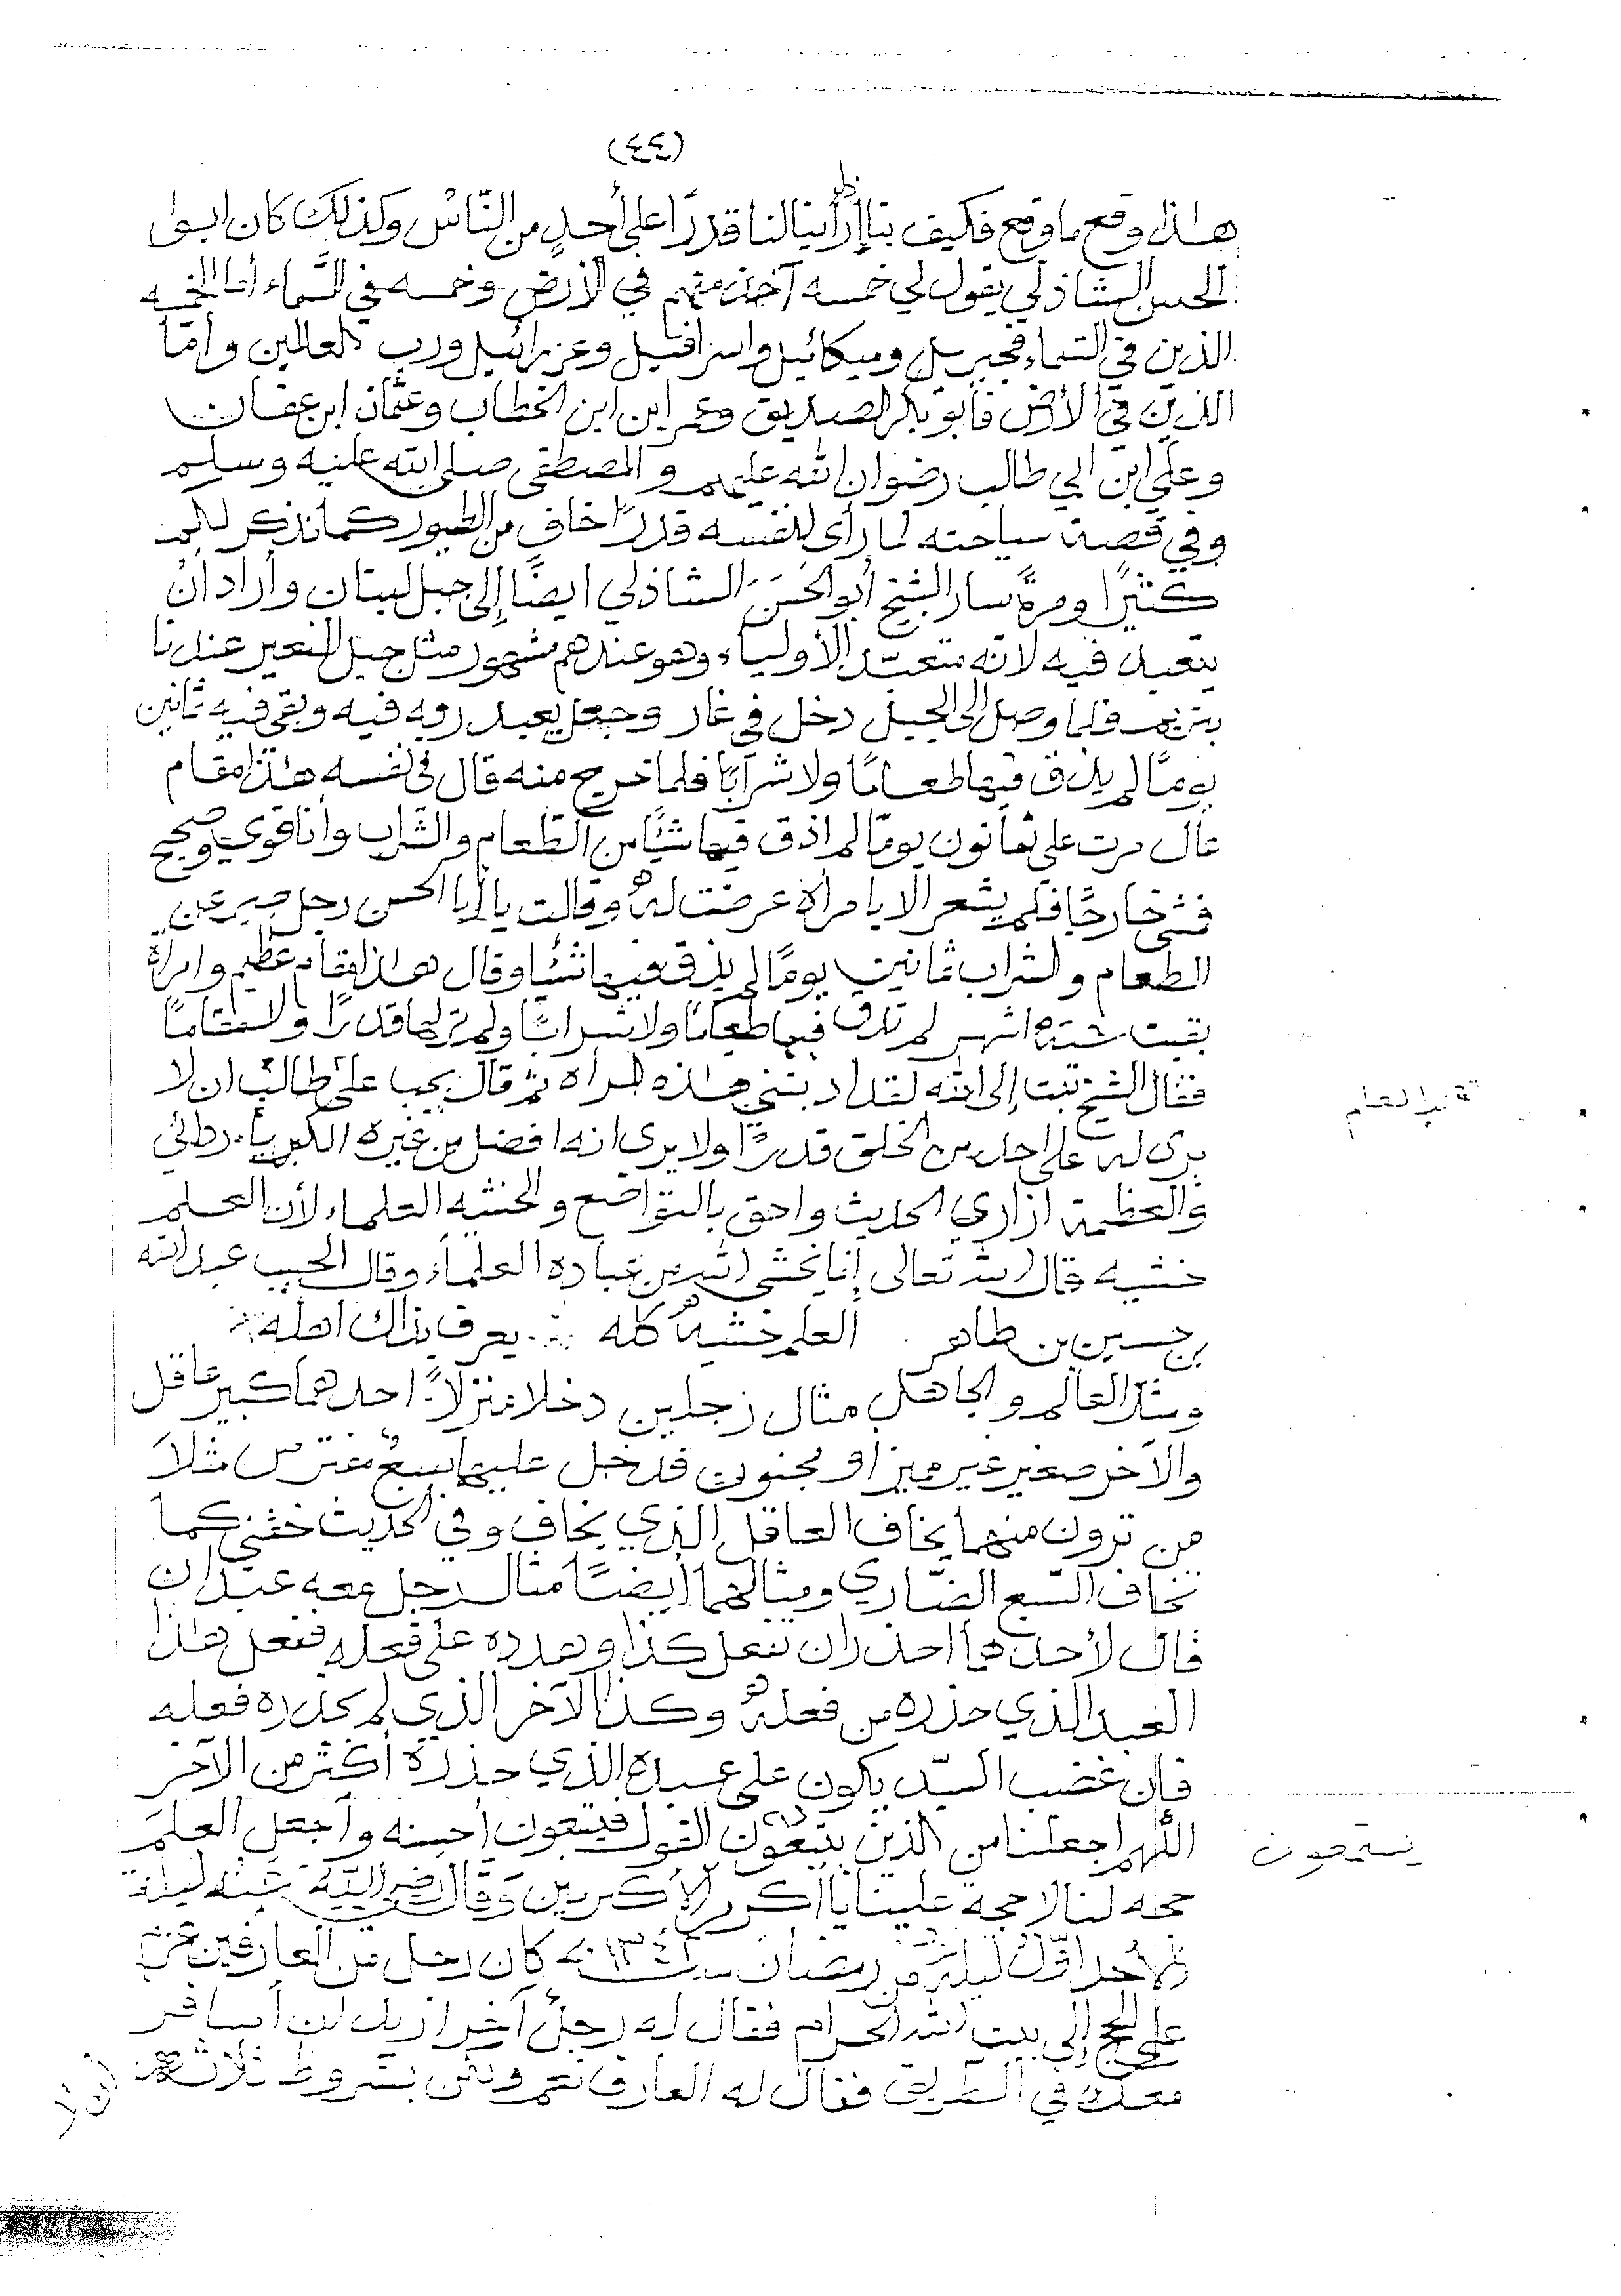 (٤٤)
هذا وقع ما وقع فكيف بنا إذا رأينا لنا قدرًا على أحدٍ من النّاس وكذلك كان ابوا
الحسن الشاذلي يقول لي خمسه آخذ منهم في الأرض وخمسه في السَّماء أما الخمسه
الذين في السّماء فجبريل وميكائيل واسرافيل وعزرائيل ورب العالمين وأمّا
الذين في الأرض فأبو بكر الصديق وعمر ابن ابن الخطاب وعثمان ابن عفان
وعلي ابن ابي طالب رضوان الله عليهم والمصطفى صلى الله عليه وسلم
وفي قصة سياحته لما رأى لنفسه قدرًا خاف من الطيور كما نذكر لكم
كثيرًا ومرةً سار الشيخ أبو الحَسَنَ الشاذلي ايضًا إلى جبل لبنان وأراد ان
يتعبد فيه لانه متعبّد الأولياء وهو عندهم مشهور مثل جبل النعير عندنا
بتريم فلما وصل الى الجبل دخل في غار وجعل يعبد ربه فيه وبقي فيه ثمانين
يومًا لم يذق فيها طعامًا ولا شرابًا فلما خرج منه قال في نفسه هذا مقام
عال مرت علي ثمانون يومًا لم اذق فيها شيئًا من الطّعام والشراب وأنا قوي وصحيح
فمشى خارجًا فلم يشعر الا بامرأة عرضت له وقالت يا أبا الحسن رجل صبر عن
الطعام والشراب ثمانين يومًا لم يذق فيها شيئا وقال هذا مقام عظيم وامرأة
بقيت ستة اشهر لم تذق فيها طعامًا ولا شرابًا ولم تر لها قدرًا ولا مقامًا
فقال الشيخ تبت إلى الله لقد ادبتني هذه المرأه ثم قال يجب على طالب ان لا
يرى له على احد من الخلق قدرًا ولا يرى انه افضل من غيره الكبرياء ردائي
تقيد العلم
والعظمة ازاري الحديث واحق بالتواضع والخشيه العلماء لأن العلم
خشيه قال الله تعالى إنما يخشى الله من عباده العلماءُ وقال الحبيب عبدالله
بن حسين بن طاهر . العلم خشيةٌ كله ∴ يعرف بذاك اهله ∴
ومثل العالم والجاهل مثال رجلين دخلا منزلاً احدهما كبير عاقل
والآخر صغير غير مميز او مجنون فدخل عليهما سبعٌ مفترس مثلاً
من ترون منهما يخاف العاقل الذي يخاف وفي الحديث خفني كما
تخاف السّبع الضّاري ومثالهما أيضًا مثال رجل معه عبدان
قال لأحدهما احذر ان تفعل كذا وهدده على فعله ففعل هذا
العبد الذي حذره من فعله وكذا الآخر الذي لم يحذره فعله
فإن غضب السيّد يكون على عبده الذي حذره أكثر من الآخر
اللّهم اجعلنا من الذين يتبعون القول فيتبعون أحسنه وآجعل العلمَ
يستمعون
حجه لنا لا حجة علينا يا أكرم الأكرمين وقال رضي الله عنه ليلة
الأحد اوّل ليلة من رمضان كان رجل من العارفين عزم
على الحج إلى بيت الله الحرام فقال له رجلٌ آخر اريد ان أسافر
معك في الطريق فقال له العارف نعم ولكن بشروط ثلاثة
ان لا